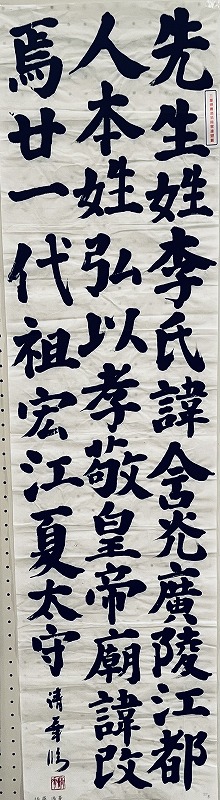 先生姓李氏諱含光廣陵江都
人本姓弘以孝敬皇帝廟諱改
焉廿一代祖宏江夏太守
清華臨